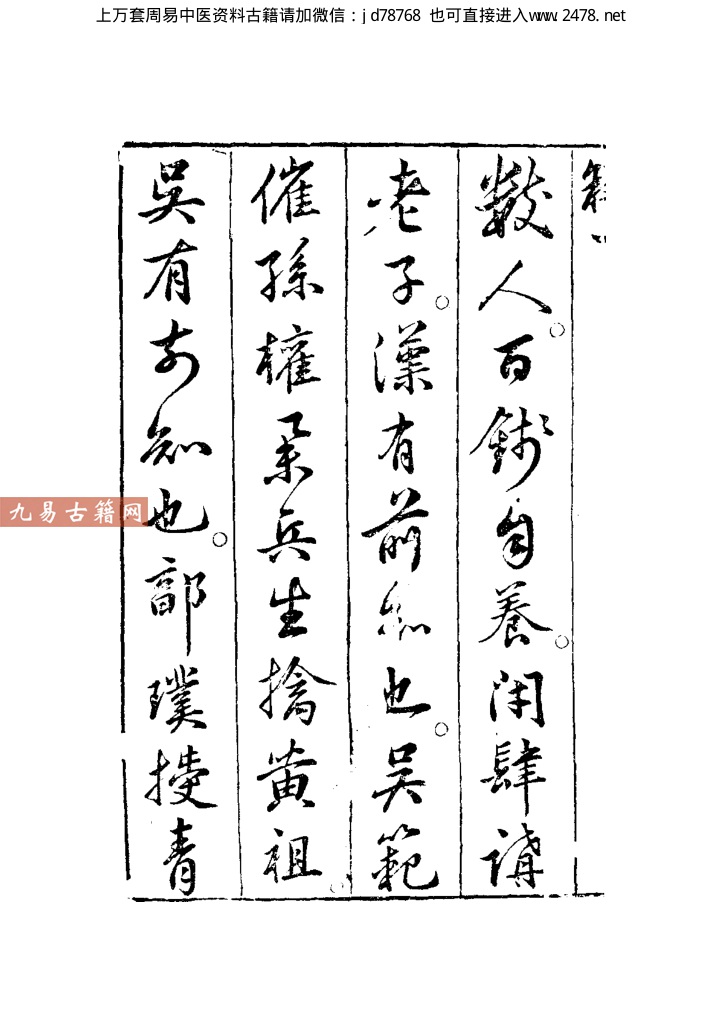 上万套周易中医资料古籍请加微信：jd78768 也可直接进入www.2478.net
數人。百錢自養。閉肆講
老子。漢有前知也。吳範
催孫權柔兵生擒黃祖。
吳有前知也。郭璞授青
九易古籍网